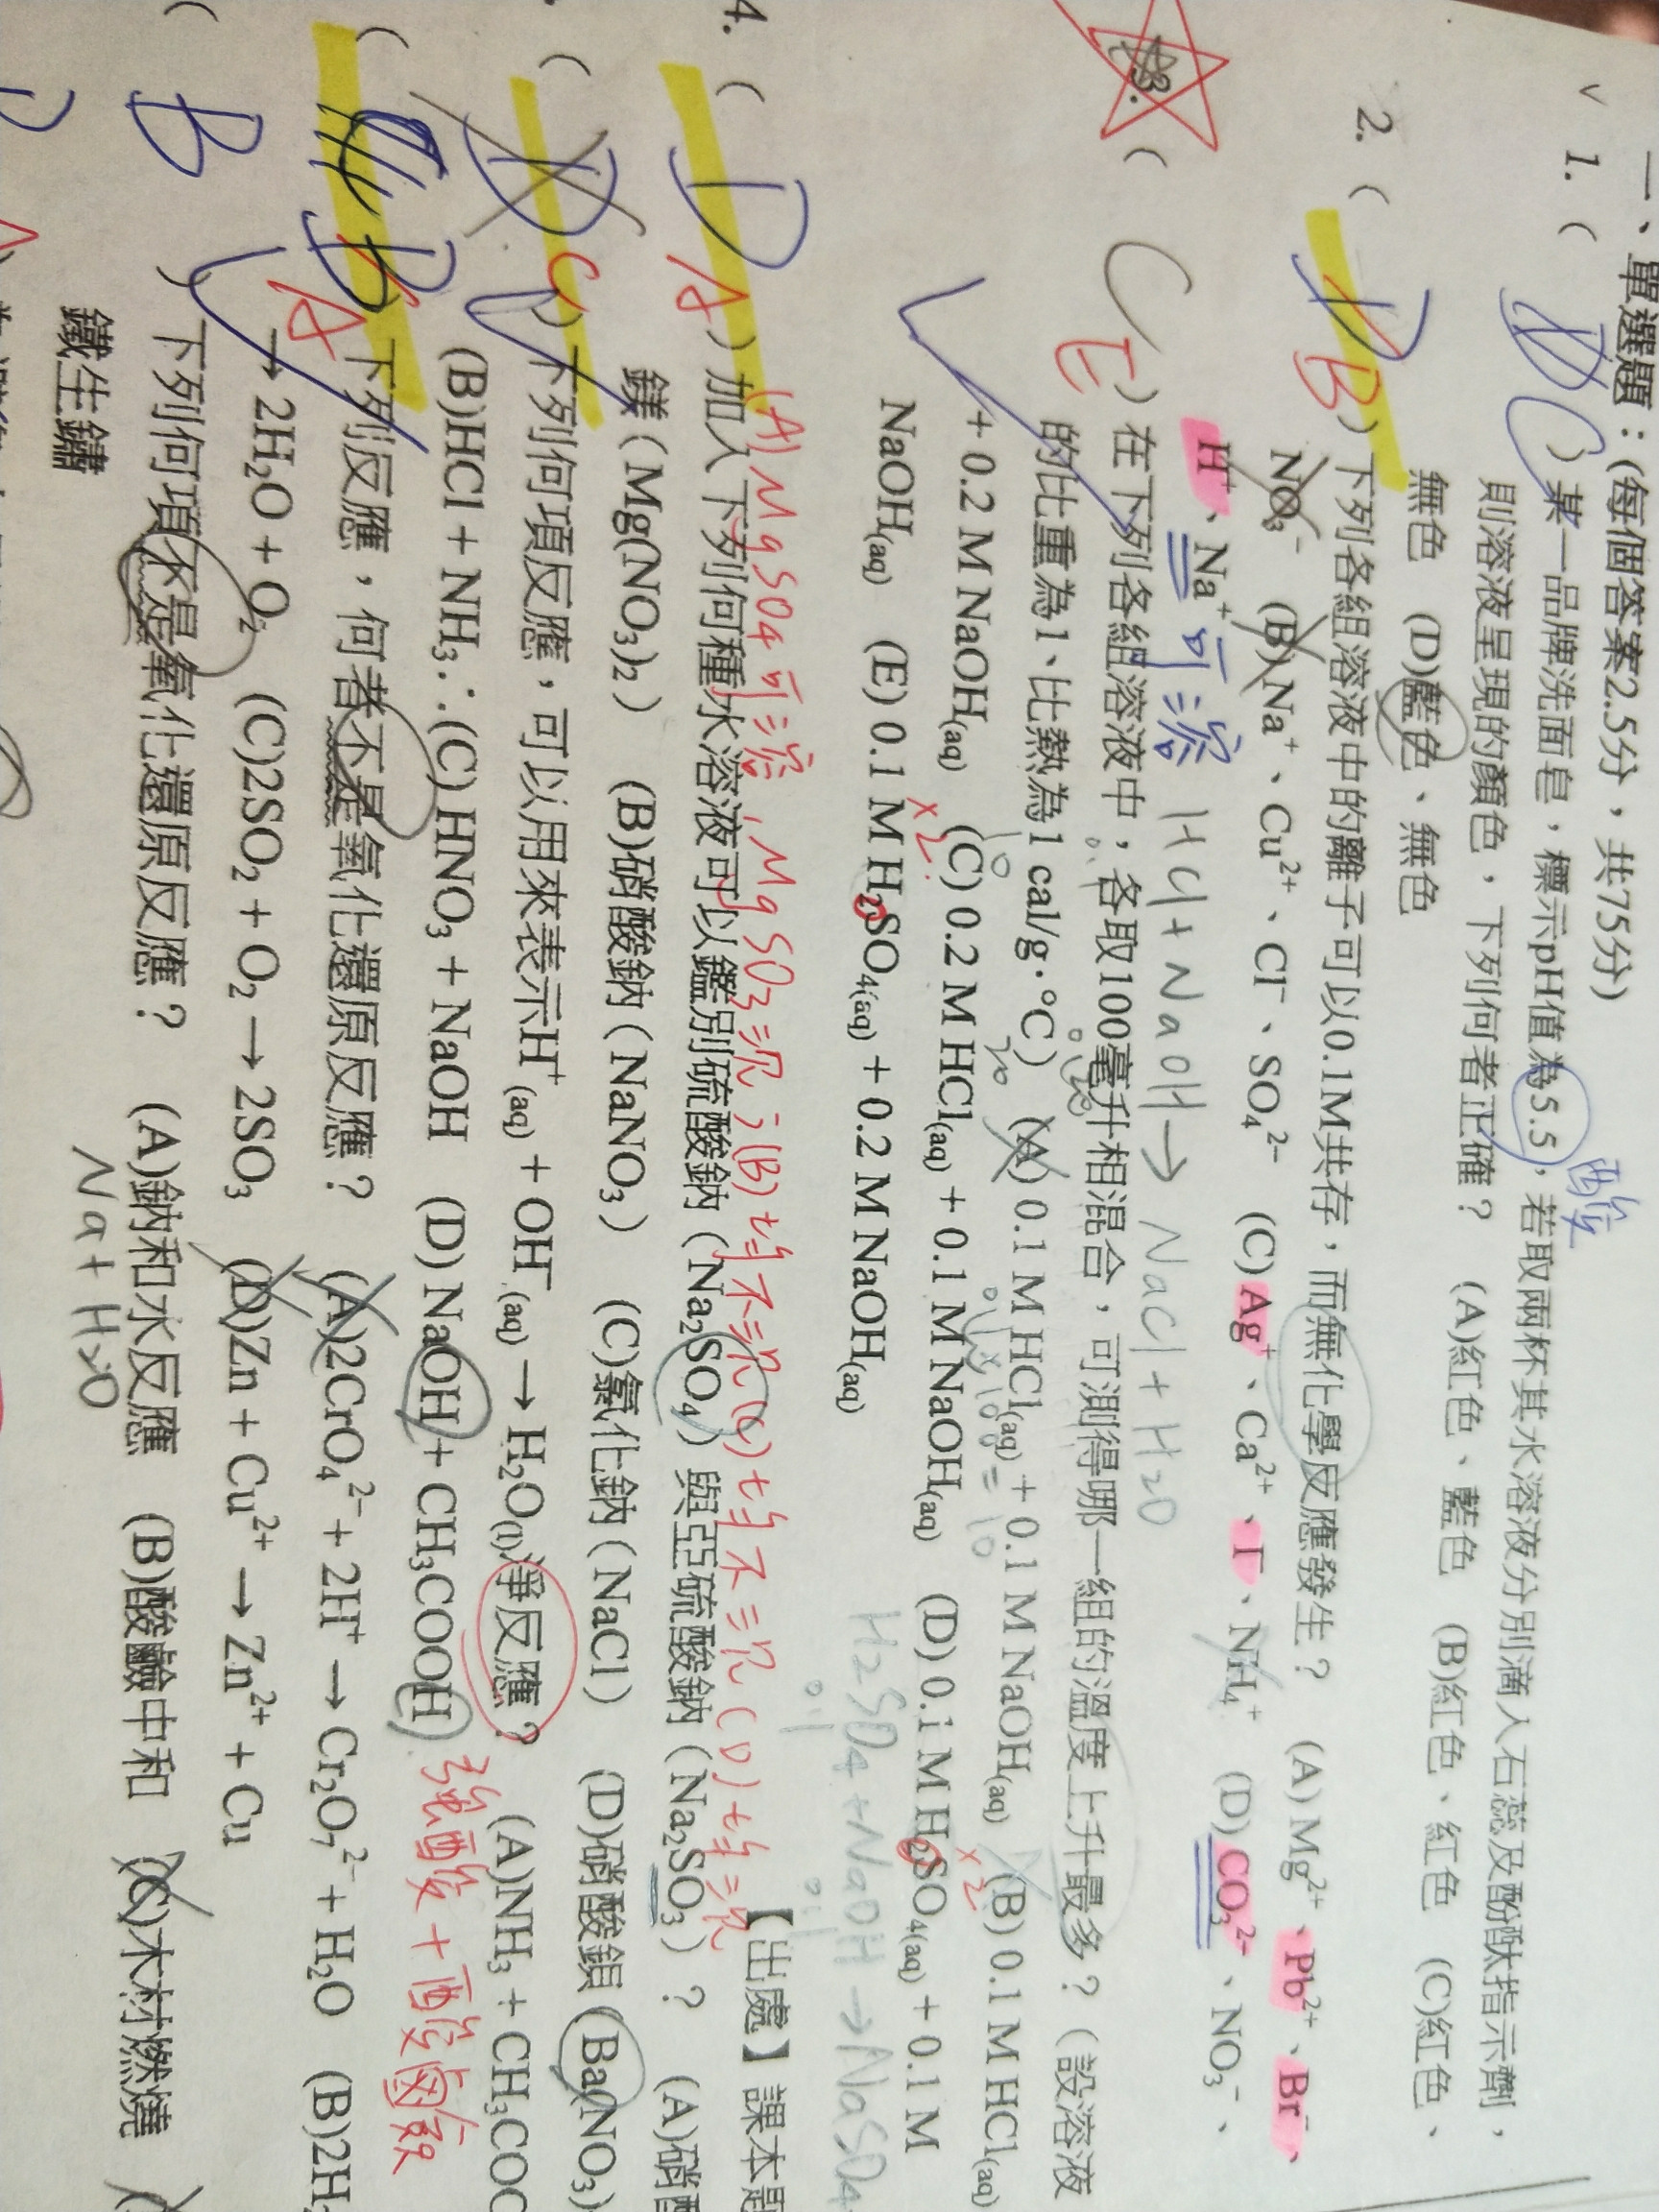 一、單選題：(每個答案2.5分，共75分)
酸
v 1. ( D C ) 某一品牌洗面皂，標示pH值為5.5，若取兩杯其水溶液分別滴入石蕊及酚酞指示劑，
則溶液呈現的顏色，下列何者正確？ (A)紅色、藍色 (B)紅色、紅色 (C)紅色、
無色 (D)藍色、無色
2. ( D B ) 下列各組溶液中的離子可以0.1M共存，而無化學反應發生？ (A) Mg²⁺、Pb²⁺、Br⁻、
NO₃⁻ (B) Na⁺、Cu²⁺、Cl⁻、SO₄²⁻ (C) Ag⁺、Ca²⁺、I⁻、NH₄⁺ (D) CO₃²⁻、NO₃⁻、
H⁺、Na⁺ 可溶
HCl + NaOH → NaCl + H₂O
3. ( C E ) 在下列各組溶液中，各取100毫升相混合，可測得哪一組的溫度上升最多？（設溶液
的比重為1、比熱為1 cal/g·°C） (A) 0.1 M HCl(aq) + 0.1 M NaOH(aq) (B) 0.1 M HCl(aq)
+ 0.2 M NaOH(aq) (C) 0.2 M HCl(aq) + 0.1 M NaOH(aq) (D) 0.1 M H₂SO₄(aq) + 0.1 M
NaOH(aq) (E) 0.1 M H₂SO₄(aq) + 0.2 M NaOH(aq)
×2
×2
H₂SO₄ + NaOH → NaSO₄
【出處】課本題
(A) MgSO₄可溶，MgSO₃沉；(B)均不沉(C)均不沉(D)均沉
4. ( D A ) 加入下列何種水溶液可以鑑別硫酸鈉（Na₂SO₄）與亞硫酸鈉（Na₂SO₃）？ (A)硝酸
鎂（Mg(NO₃)₂） (B)硝酸鈉（NaNO₃） (C)氯化鈉（NaCl） (D)硝酸鋇（Ba(NO₃)
( D C ) 下列何項反應，可以用來表示H⁺(aq) + OH⁻(aq) → H₂O(l)淨反應？ (A)NH₃ + CH₃COO
(B)HCl + NH₃ (C) HNO₃ + NaOH (D) NaOH + CH₃COOH 強酸+酸鹼
( B A 下列反應，何者不是氧化還原反應？ (A)2CrO₄²⁻ + 2H⁺ → Cr₂O₇²⁻ + H₂O (B)2H₂
→ 2H₂O + O₂ (C)2SO₂ + O₂ → 2SO₃ (D)Zn + Cu²⁺ → Zn²⁺ + Cu
( B ) 下列何項不是氧化還原反應？ (A)鈉和水反應 (B)酸鹼中和 (C)木材燃燒
Na + H₂O
鐵生鏽